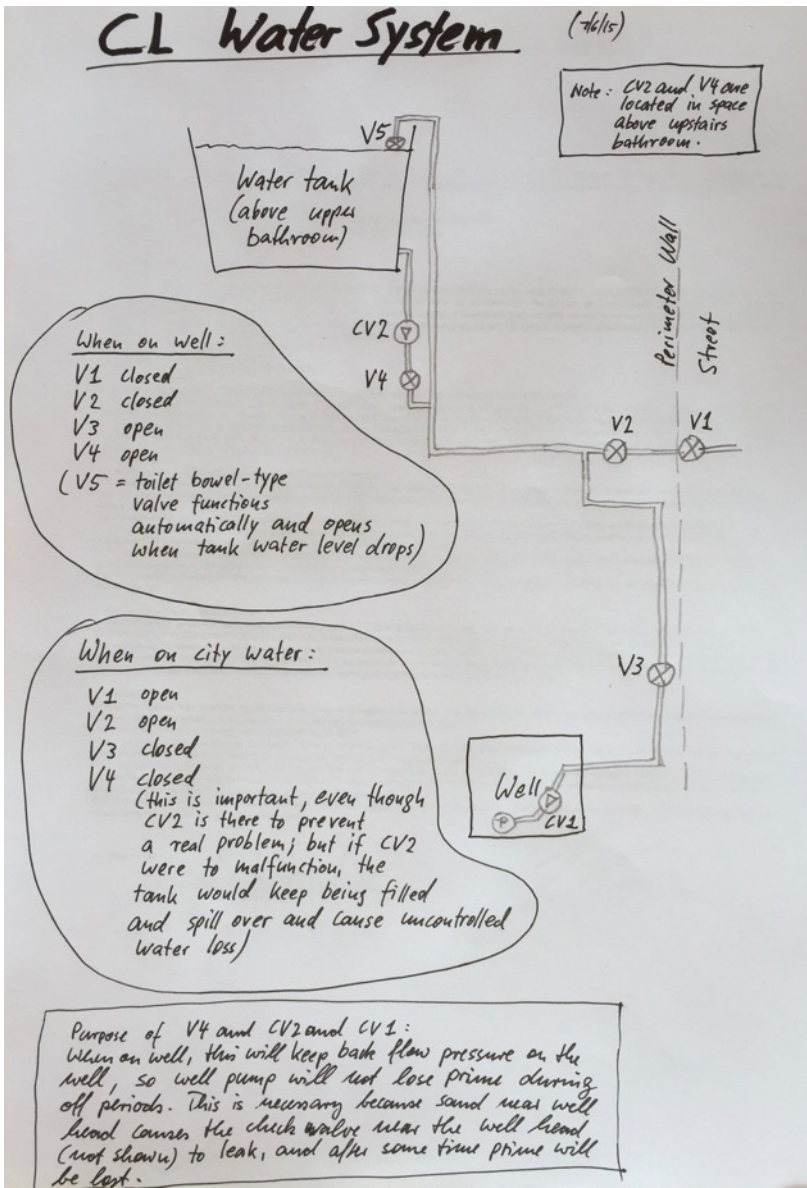 CL Water System
(7/6/15)
Note: CV2 and V4 are
located in space
above upstairs
bathroom.
V5
Water tank
(above upper
bathroom)
Perimeter Wall
Street
CV2
V4
V2
V1
When on well:
V1 closed
V2 closed
V3 open
V4 open
(V5 = toilet bowel-type
valve functions
automatically and opens
when tank water level drops)
V3
When on city water:
V1 open
V2 open
V3 closed
V4 closed
(this is important, even though
CV2 is there to prevent
a real problem; but if CV2
were to malfunction, the
tank would keep being filled
and spill over and cause uncontrolled
water loss)
Well
P
CV1
Purpose of V4 and CV2 and CV1:
When on well, this will keep back flow pressure on the
well, so well pump will not lose prime during
off periods. This is necessary because sand near well
head causes the check valve near the well head
(not shown) to leak, and after some time prime will
be lost.